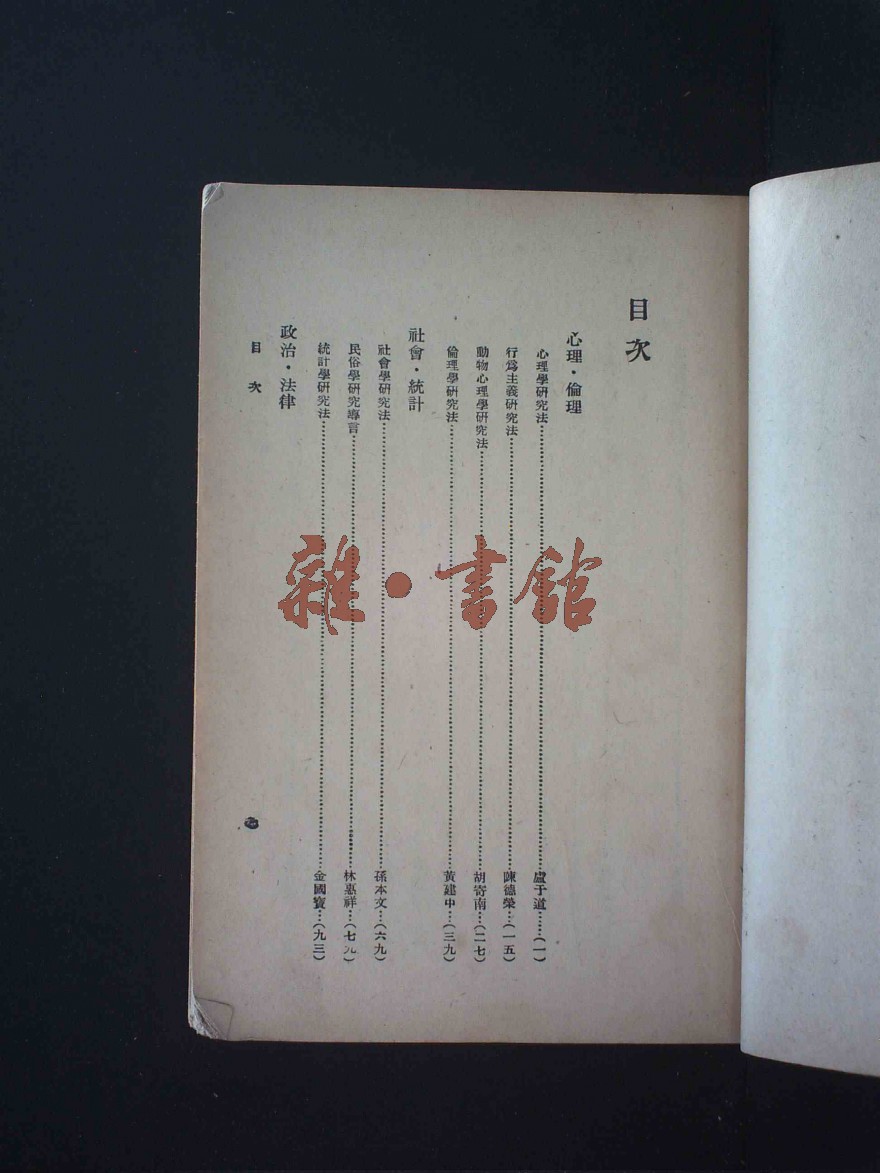 目次
心理・倫理
心理學研究法……盧于道……(一)
行爲主義研究法……陳德榮…(一五)
動物心理學研究法……胡寄南…(二七)
倫理學研究法……黃建中…(三九)
社會・統計
社會學研究法……孫本文…(六九)
民俗學研究導言……林惠祥…(七九)
統計學研究法……金國寶…(九三)
政治・法律
目次
雜・書館